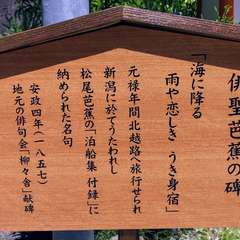 俳聖芭蕉の碑
「海に降る
雨や恋しき うき身宿」
元禄年間北越路へ旅行せられ
新潟に於てうたわれし
松尾芭蕉の「泊船集 付録」に
納められた名句
安政四年(一八五七)
地元の俳句会「柳々舎」献碑